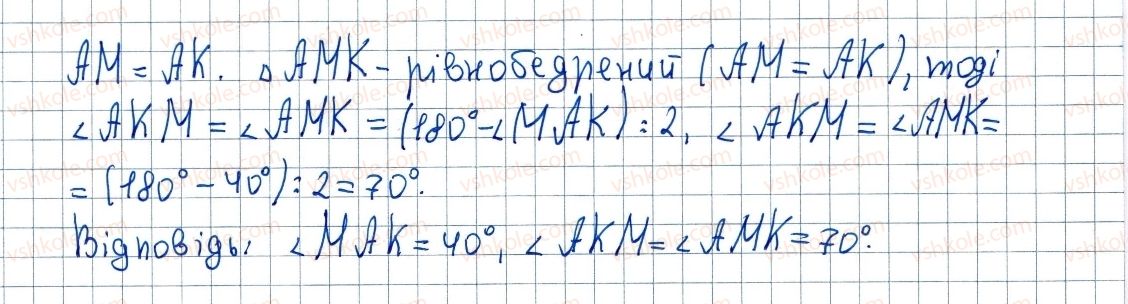 AM = AK. △ AMK - рівнобедрений (AM = AK), тоді
∠ AKM = ∠ AMK = (180° - ∠ MAK) : 2, ∠ AKM = ∠ AMK =
= (180° - 40°) : 2 = 70°.
Відповідь: ∠ MAK = 40°, ∠ AKM = ∠ AMK = 70°.